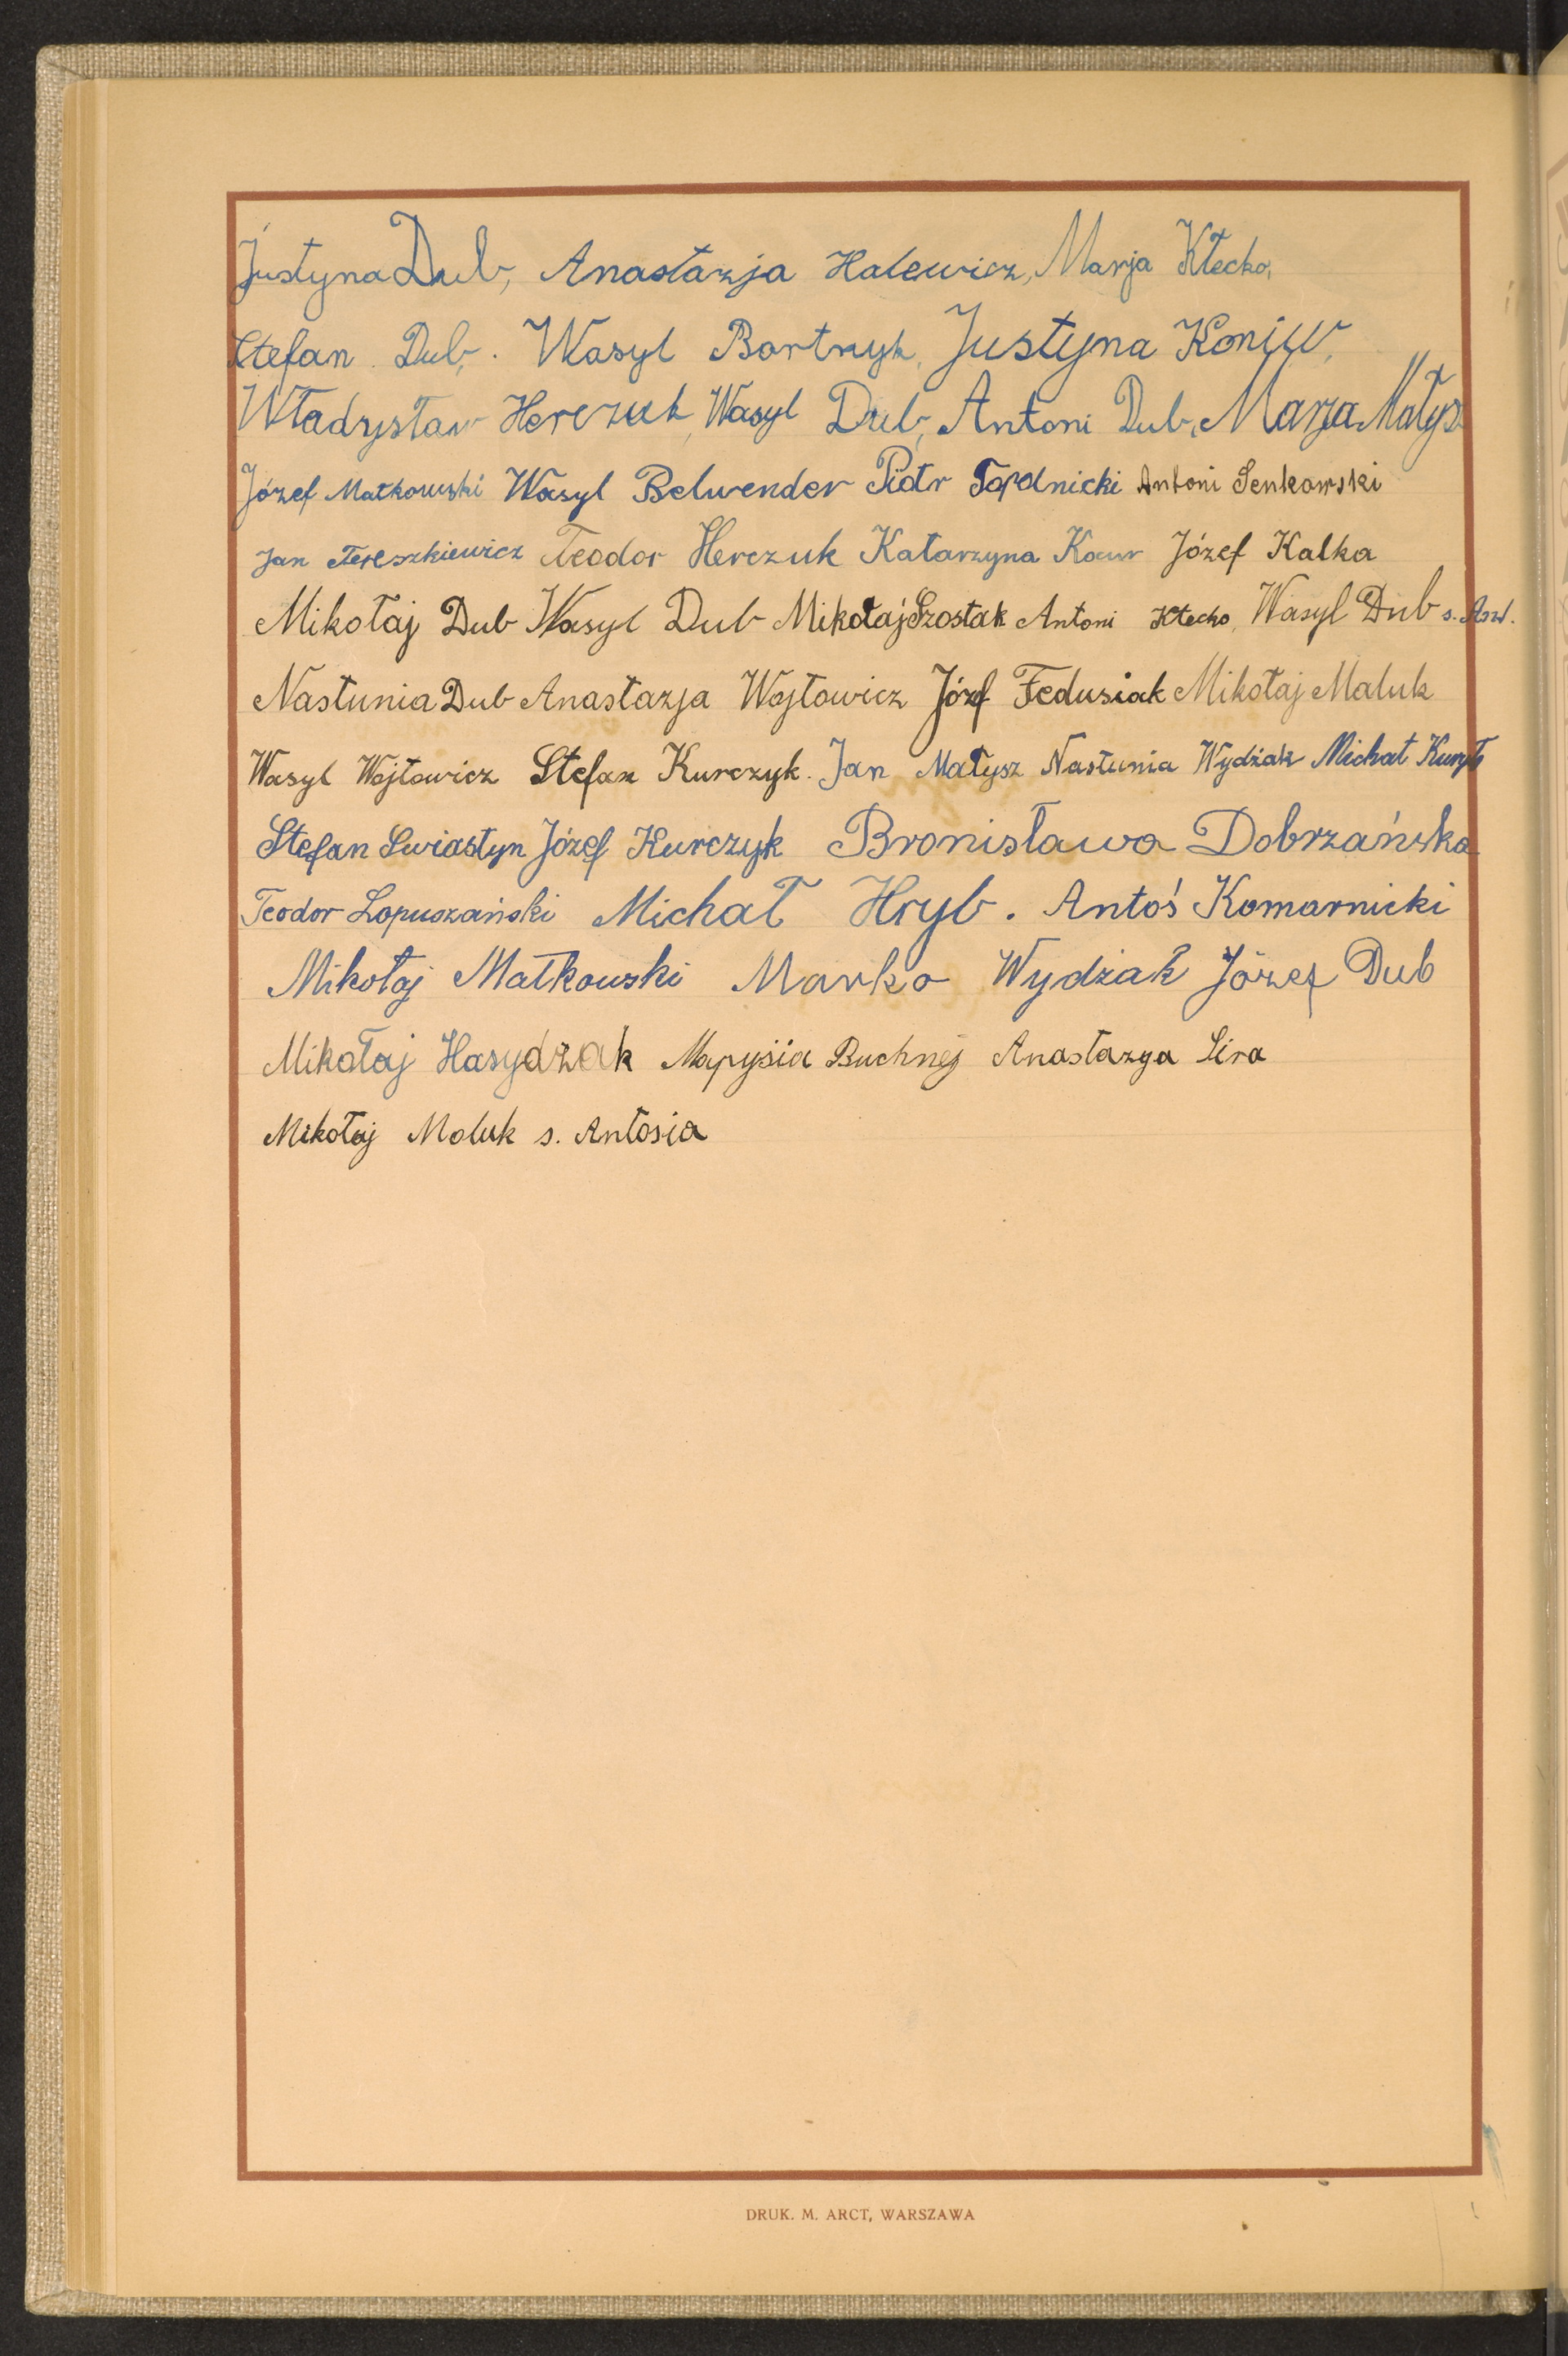 Justyna Dub, Anastazja Halewicz, Marja Kłecko,
Stefan Dub, Wasyl Bartnyk, Justyna Koniw,
Władzysław Herczuk, Wasyl Dub, Antoni Dub, Marja Małysz
Józef Matkowski Wasyl Belwender Piotr Antoni Senkowski
Jan Tereszkiewicz Teodor Herczuk Katarzyna Józef Kalka
Mikołaj Dub Wasyl Dub Mikołaj Szostak Antoni Kłecko, Wasyl Dub s.
Nastunia Dub Anastazja Wojtowicz Józef Fedusiak Mikołaj Maluk
Wasyl Wojtowicz Stefan Kurczyk. Jan Małysz Nastunia Wydźiak Michał
Stefan Swiastyn Józef Kurczyk Bronisława Dobrzańska
Teodor Łopuszański Michał Hryb. Antoś Komarnicki
Mikołaj Matkowski Marko Wydźiak Józef Dub
Mikołaj Hasydzak Marysia Buchnéj Anastazya Sira
Mikołaj Moluk s. Antosia
DRUK. M. ARCT, WARSZAWA